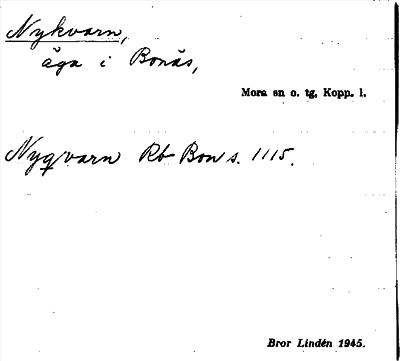 Nykvarn,
äga i Bonäs,
Mora sn o. tg. Kopp. l.
Nyqvarn Rb Bon s. 1115.
Bror Lindén 1945.